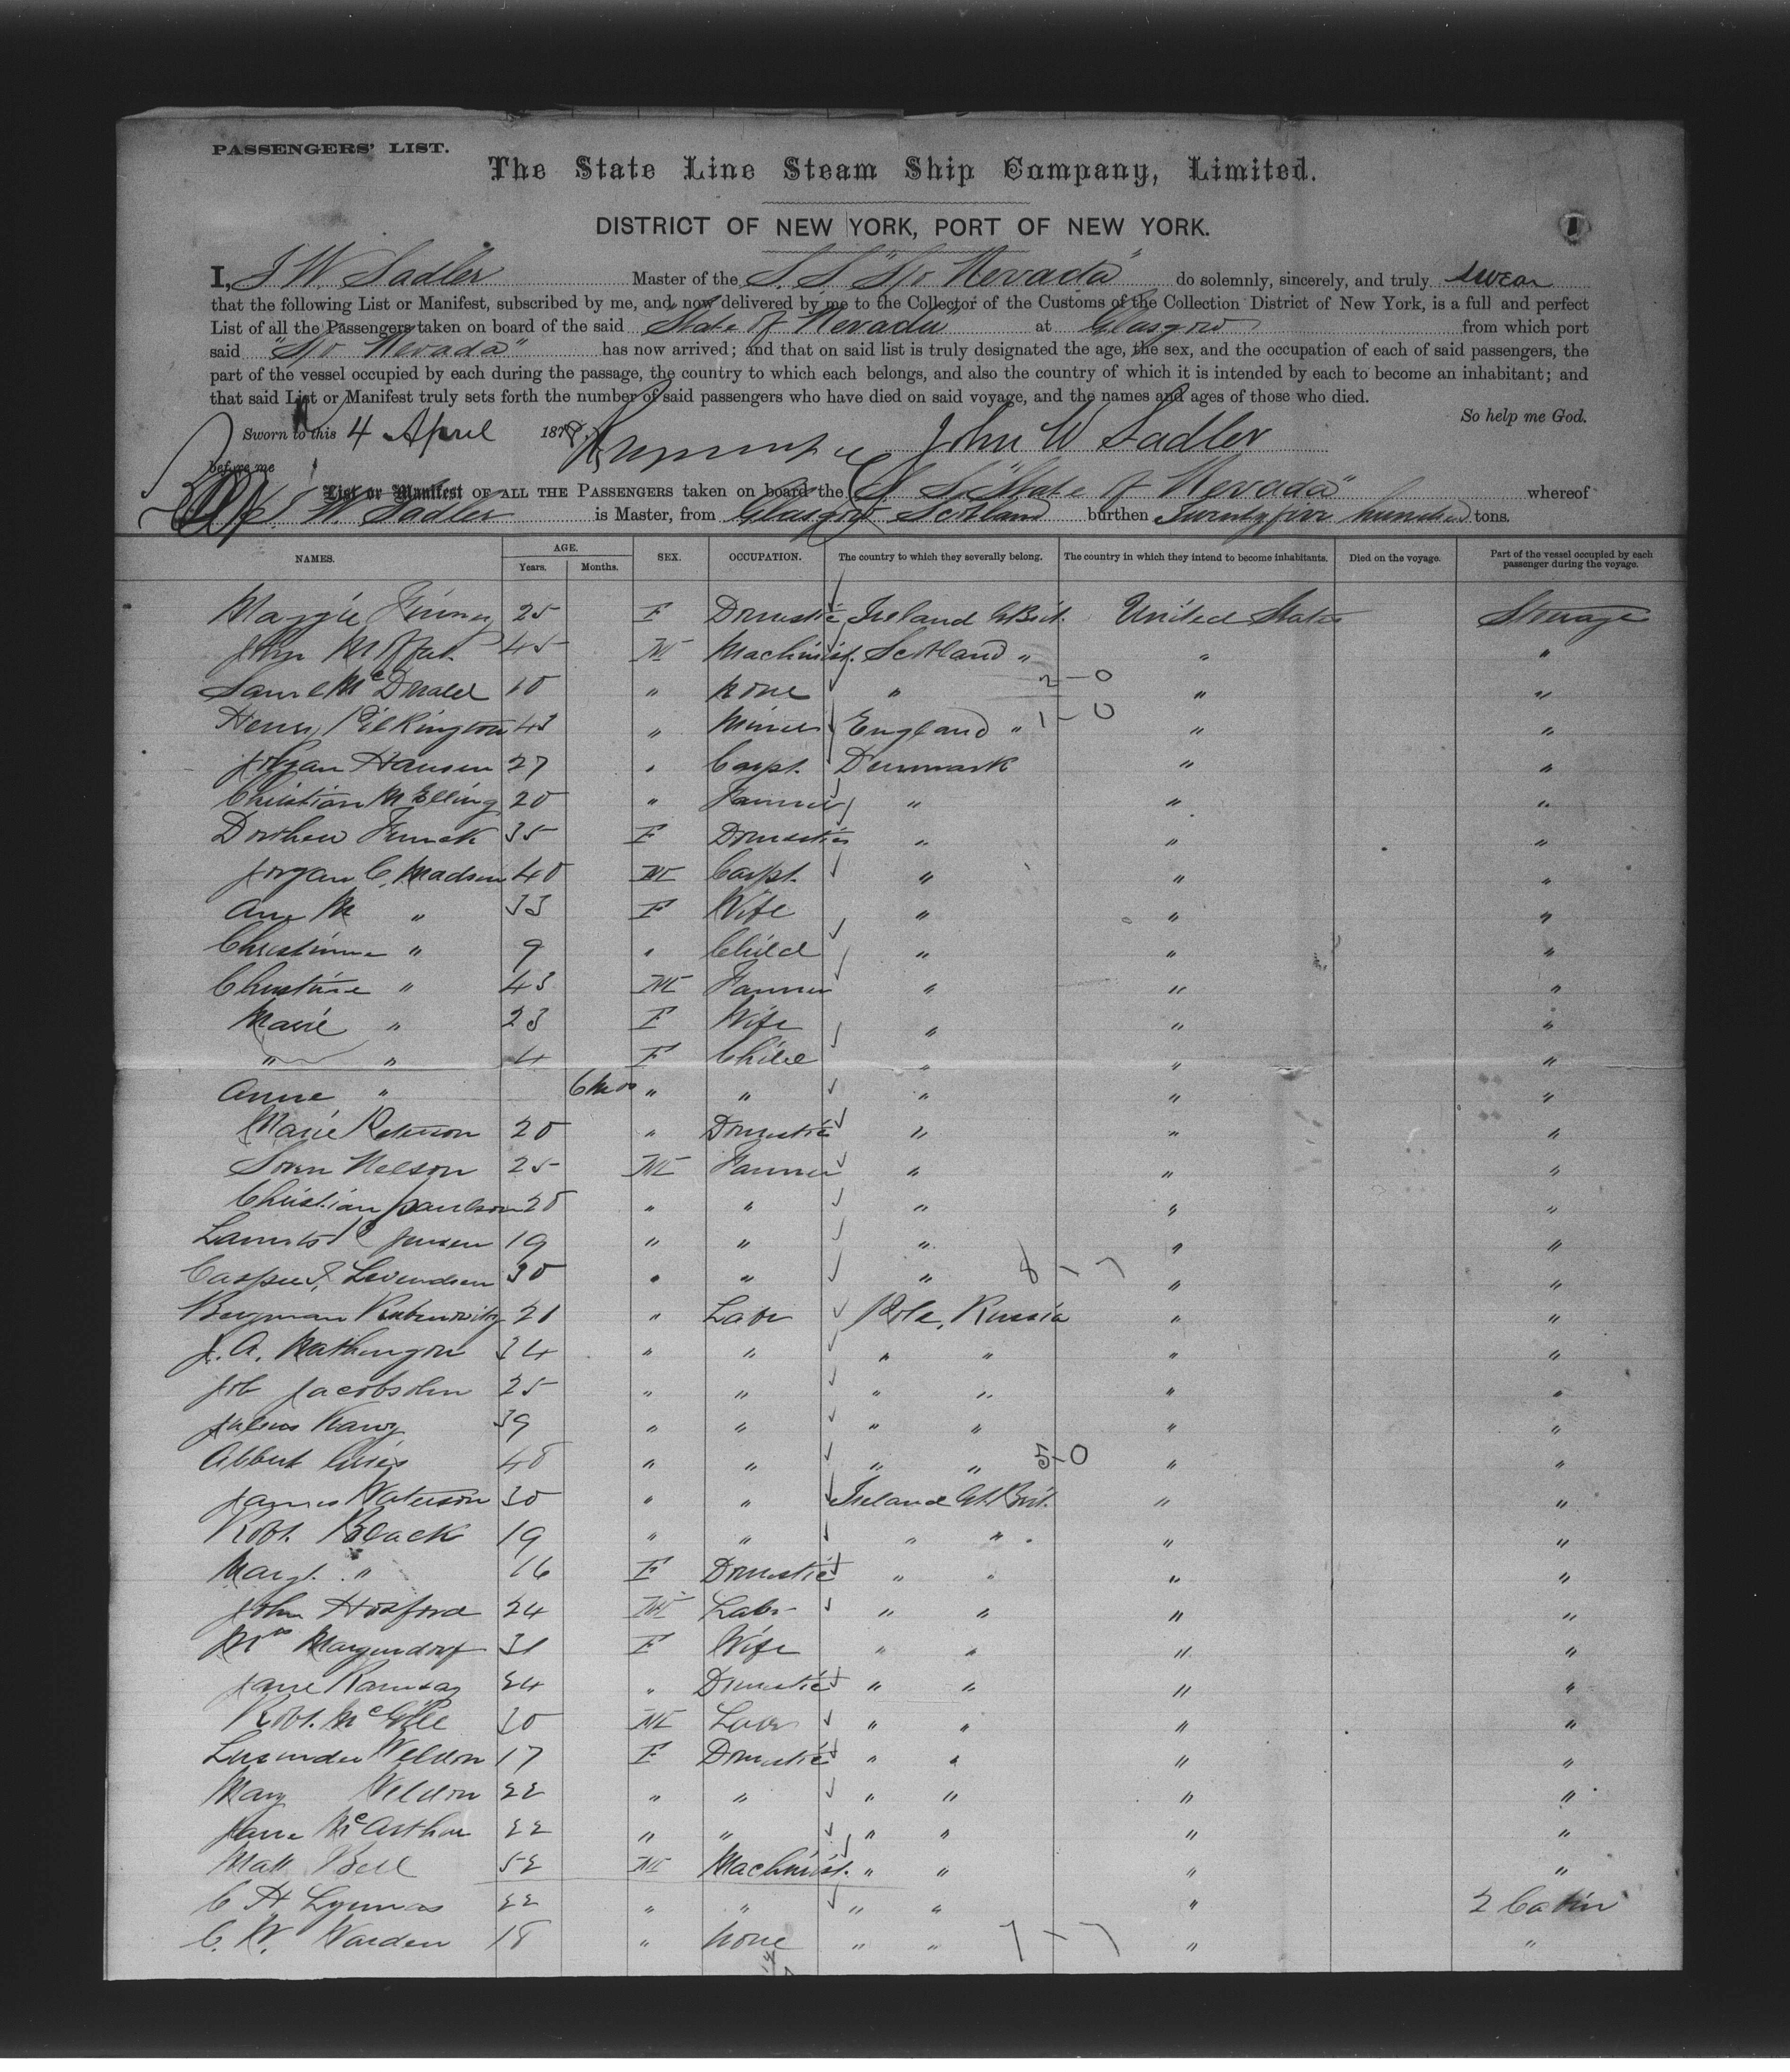 PASSENGERS' LIST.
The State Line Steam Ship Company, Limited.
DISTRICT OF NEW YORK, PORT OF NEW YORK.
I, J W. Sadler Master of the S. S "S/o Nevada" do solemnly, sincerely, and truly swear
that the following List or Manifest, subscribed by me, and now delivered by me to the Collector of the Customs of the Collection District of New York, is a full and perfect
List of all the Passengers taken on board of the said State of Nevada" at Glasgow from which port
said "S/o Nevada" has now arrived; and that on said list is truly designated the age, the sex, and the occupation of each of said passengers, the
part of the vessel occupied by each during the passage, the country to which each belongs, and also the country of which it is intended by each to become an inhabitant; and
that said List or Manifest truly sets forth the number of said passengers who have died on said voyage, and the names and ages of those who died.
So help me God.
Sworn to this 4 April 1878. John W Sadler
before me
List or Manifest OF ALL THE PASSENGERS taken on board the S. S. "State of Nevada" whereof
J W. Sadler is Master, from Glasgow Scotland burthen Twenty five hundred tons.
NAMES. AGE. SEX. OCCUPATION. The country to which they severally belong. The country in which they intend to become inhabitants. Died on the voyage. Part of the vessel occupied by each passenger during the voyage.
Years. Months.
Maggie 25 F Domestic Ireland G Brit. United States Steerage
John Moffat 45 M Machinist. Scotland " " "
Saml McDonald 10 " none " 2-0 " "
Henry Pilkington 43 " Miner England " 1-0 " "
Jorgan Hansen 27 " Carpt. Denmark " "
Christian M Elling 20 " Farmer " " "
Dorthea 35 F Domestic " " "
Jorgan C. Madsen 40 M Carpt. " " "
Ane M " 33 F Wife " " "
" 9 " Child " " "
" 43 M Farmer " " "
Marie " 23 F Wife " " "
" " 4 F Child " " "
Anne " 6 Mos " " " " "
Marie Peterson 20 " Domestic " " "
Soren Nelson 25 M Farmer " " "
Christian Paulson 20 " " " " "
Jensen 19 " " " " "
30 " " " 8-7 " "
21 " Labr Pole, Russia " "
J. A. 34 " " " " " "
Job Jacobsohn 25 " " " " " "
Julius 39 " " " " " "
Albert 40 " " " " 5-0 " "
James Waterson 30 " " Ireland Gt. Brit. " "
Robt. Black 19 " " " " " "
Margt. " 16 F Domestic " " " "
John Hosford 24 M Labr " " " "
Mrs 31 F Wife " " " "
Jane Ramsay 24 " Domestic " " " "
Robt. McGill 30 M Labr " " " "
Lucinda Weldon 17 F Domestic " " " "
Mary Weldon 22 " " " " " "
Jane McArthur 22 " " " " " "
Matt Bell 52 M Machinist. " " " "
C H Lynnas 22 " " " " " 2 Cabin
C. W. Warden 18 " none " " 7-7 " "